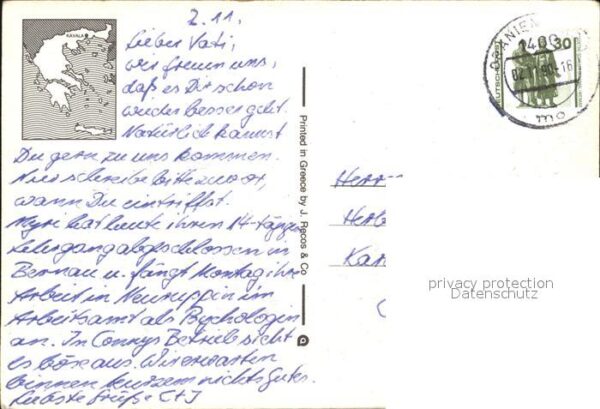 2.11.
Lieber Vati,
wir freuen uns,
daß es Dir schon
wieder besser geht.
Natürlich kannst
Du gern zu uns kommen.
Nur schreibe bitte zuvor,
wann Du eintriffst.
Myri hat heute ihren 14-tägigen
Lehrgang abgeschlossen in
Bernau u. fängt Montag ihre
Arbeit in Neuruppin im
Arbeitsamt als Psychologin
an. In Connys Betrieb sieht
es böse aus. Wir erwarten
binnen kurzem nichts Gutes.
Liebste Grüße C+J
KAVALA
Printed in Greece by J. Recos & Co
ORANIEN
1400
02.11.90-16
mo
30
DEUTSCHE
Herr
Herb
Kar
privacy protection
Datenschutz